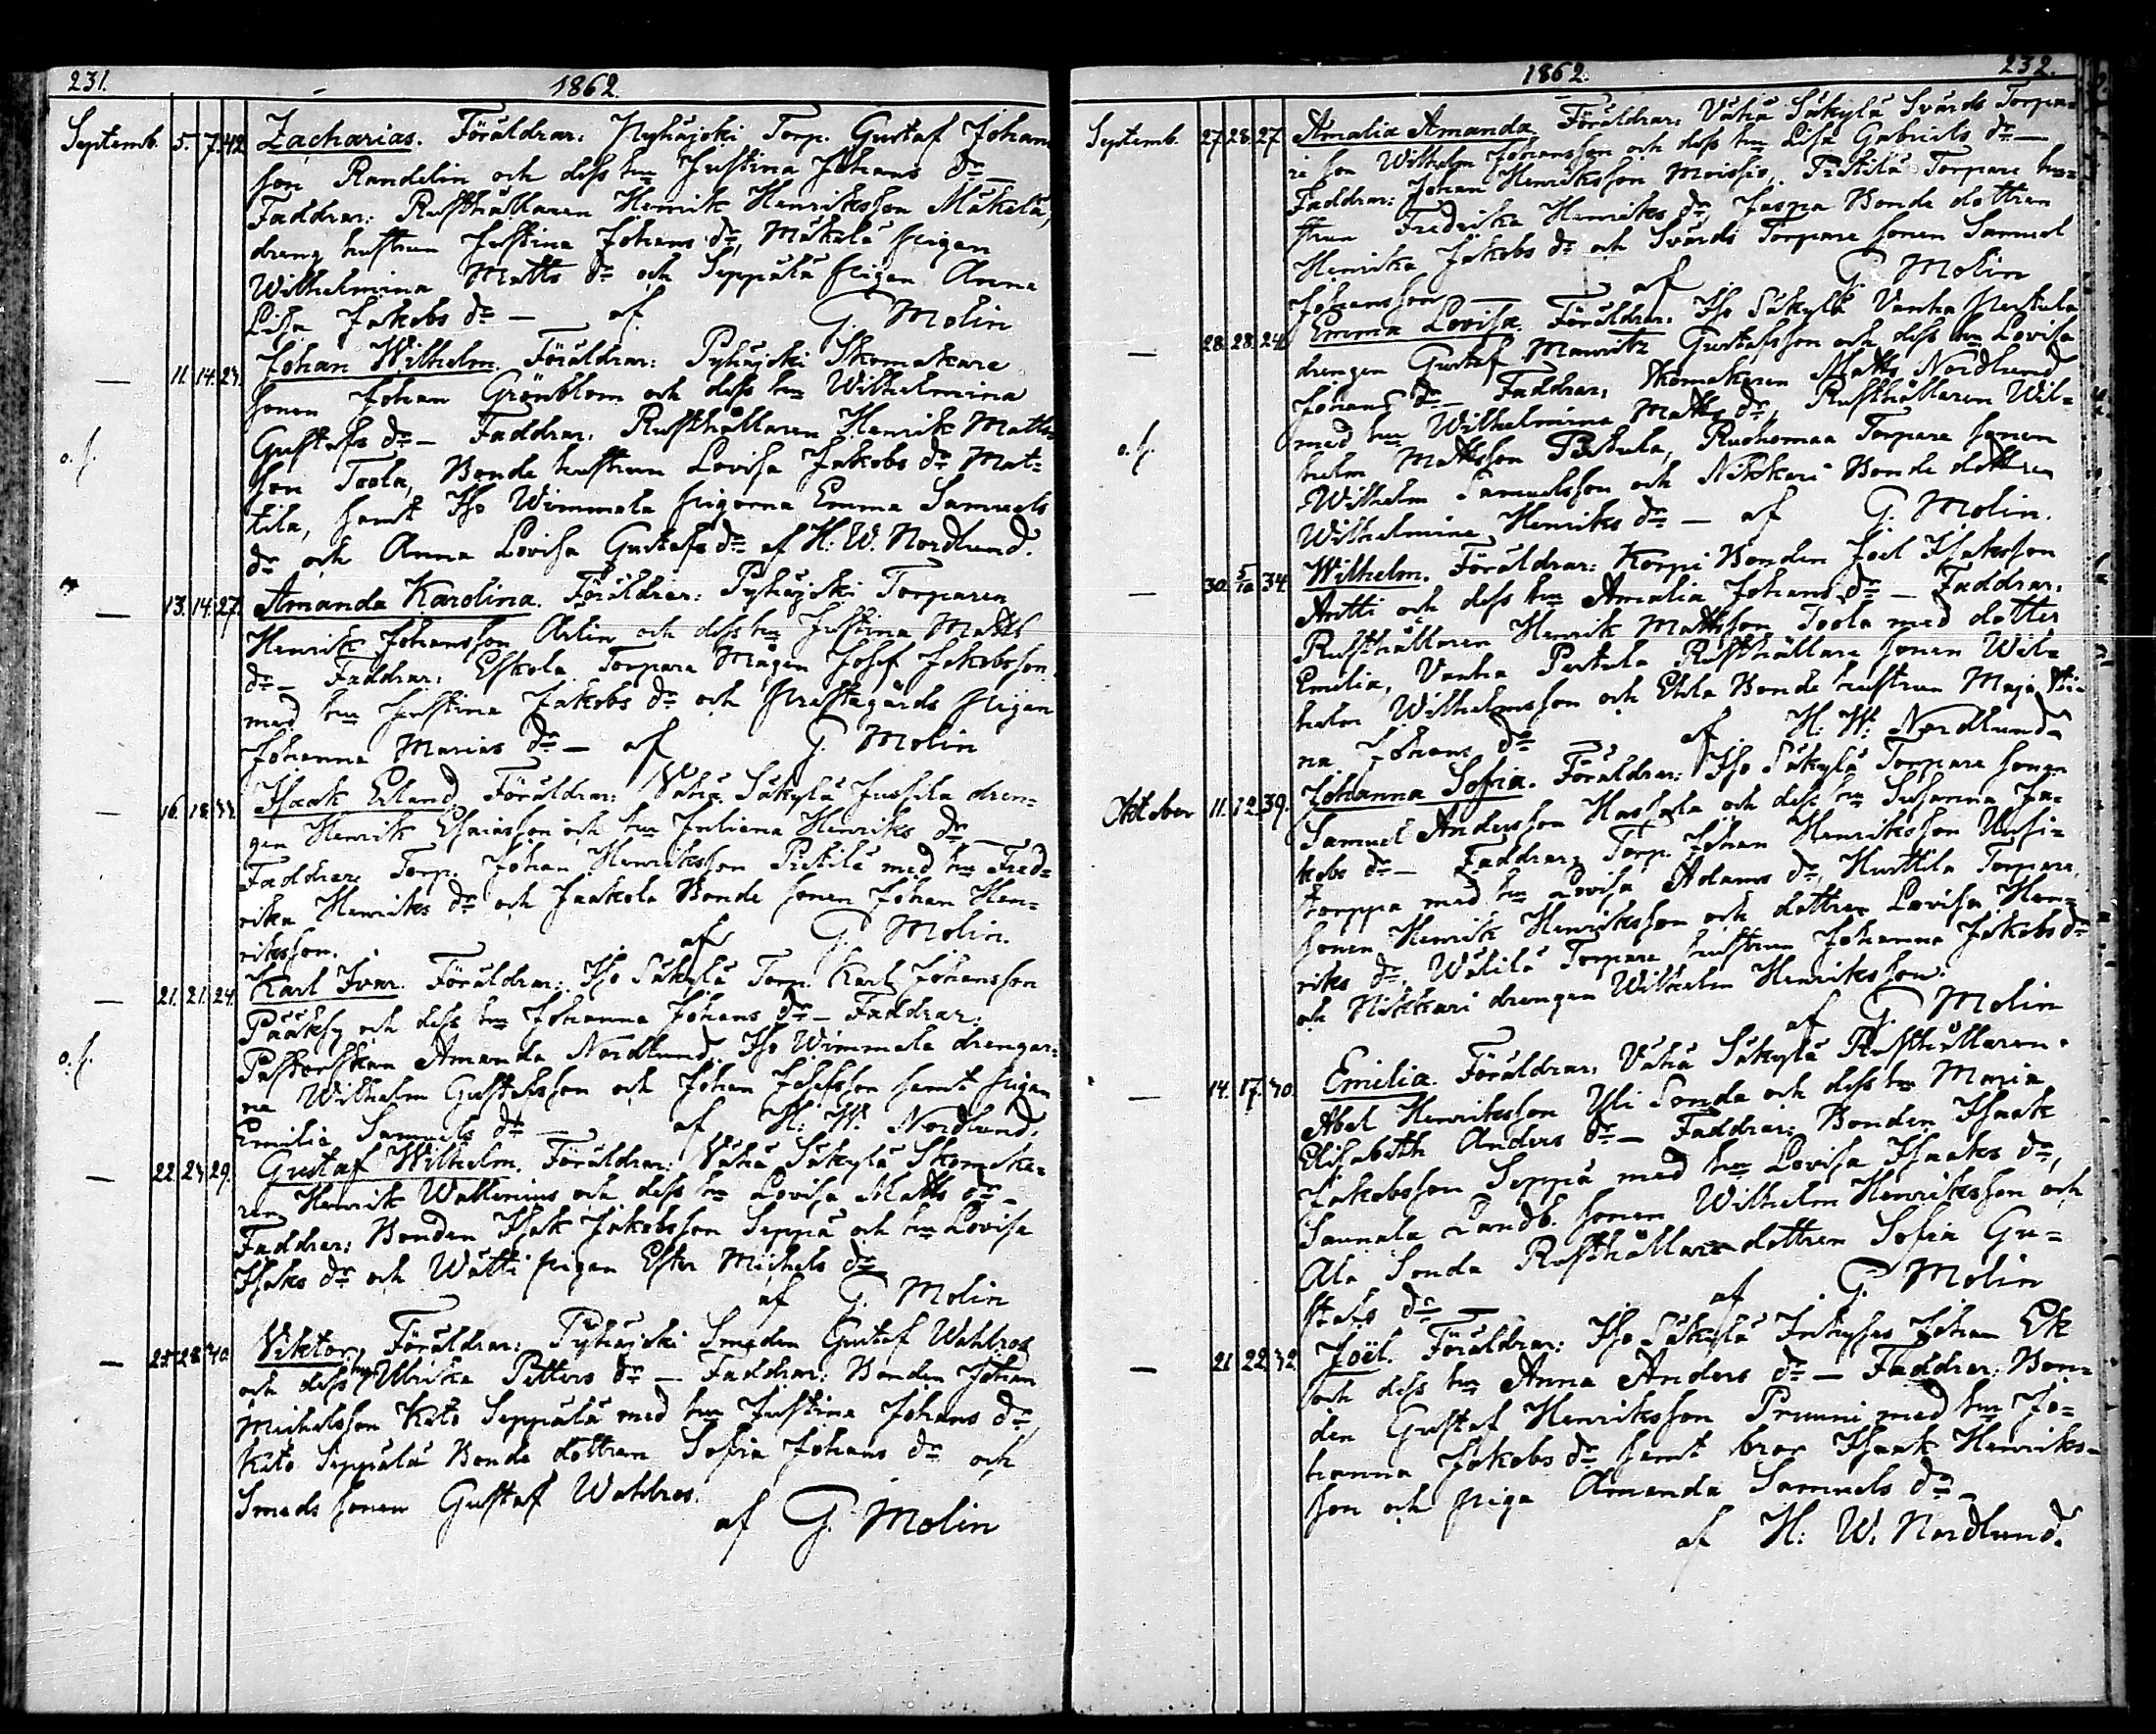 231. 1862.
Septemb. 5. 7. 42. Zacharias. Föräldrar: Pyhäjoki Torp. Gustaf Johans
son Randelin och dess hu Justina Johans dr —
Faddrar: Rusthållaren Henrik Henriksson Mäkelä,
dreng hustrun Justina Johans dr, Mäkelä pigan
Wilhelmina Matts dr och Seppälä pigan Anna
Lisa Jakobs dr — af G. Molin
— 11. 14. 24. Johan Wilhelm. Föräldrar: Pyhäjoki Skomakare
sonen Johan Grönblom och dess hu Wilhelmina
Gustafs dr — Faddrar: Rusthållaren Henrik Matts
o. f. son Toola, Bonde hustrun Lovisa Jakobs dr Mat=
tila, samt Iso Wimmala pigorna Emma Samuels
dr och Anna Lovisa Gustafs dr af H. W. Nordlund.
— 13. 14. 27. Amanda Karolina. Föräldrar: Pyhäjoki Torparen
Henrik Johansson Arlin och dess hu Justina Matts
dr — Faddrar: Eskola Torpare Mågen Josef Jakobsson
med hu Justina Jakobs dr och Prestagårds pigan
Johanna Marias dr — af G. Molin
— 16. 18. Isaak Erland. Föräldrar: Vähä Säkylä Jussila dren=
gen Henrik Esaiasson och hu Juliana Henriks dr —
Faddrar: Torp. Johan Henriksson Pistilä med hu Fred=
rika Henriks dr och Jaakola Bonde sonen Johan Hen=
riksson. af G. Molin.
— 21. 21. 24. Karl Ivar. Föräldrar: Iso Säkylä Torp. Karl Johansson
Pääksy och dess hu Johanna Johans dr — Faddrar:
o. f. Pastorskan Amanda Nordlund. Iso Wimmala drengar=
na Wilhelm Gustafsson och Johan Josefsson samt pigan
Emilia Samuels dr — af H. W. Nordlund.
— 22. 24. 29. Gustaf Wilhelm. Föräldrar: Vähä Säkylä Skomaka=
ren Henrik Wallenius och dess hu Lovisa Matts dr —
Faddrar: Bonden Isak Jakobsson Seppä och hu Lovisa
Isaks dr och Wätti pigan Ester Michels dr
af G. Molin
— 27. 28. 40. Viktor, Föräldrar: Pyhäjoki Smeden Gustaf Wahlros
och dess hu Ulrika Petters dr — Faddrar: Bonden Johan
Michelsson Keto Seppälä med hu Justina Johans dr,
Keto Seppälä Bonde dottren Sofia Johans dr och
Smeds sonen Gustaf Wahlros.
af G. Molin
1862. 232.
Septemb. 27. 28. 27. Amalia Amanda. Föräldrar: Vähä Säkylä Svärds Torpa=
re son Wilhelm Johansson och dess hu Lisa Gabriels dr —
Faddrar: Johan Henriksson Moisio, Pistilä Torpare hu=
strun Fredrika Henriks dr, Jaspa Bonde dottren
Henrika Jakobs dr och Svärds Torpare sonen Samuel
Johansson — af G. Molin
— 28. 28. 24. Emma Lovisa. Föräldrar: Iso Säkylä Vanha Pertula
drengen Gustaf Mauritz Gustafsson och dess hu Lovisa
Johans dr — Faddrar: Skomakaren Matts Nordlund
o. f. med hu Wilhelmina Matts dr, Rusthållaren Wil=
helm Mattsson Pertula, Ruohomaa Torpare sonen
Wilhelm Samuelsson och Nikkari Bonde dottren
Wilhelmina Henriks dr — af G. Molin.
— 30. 5/10 34. Wilhelm. Föräldrar: Korpi Bonden Joel Isaksson
Antti och dess hu Amalia Johans dr — Faddrar:
Rusthållaren Henrik Mattsson Toola med dotter
Emilia, Vanha Pertula Rusthållare sonen Wil=
helm Wilhelmsson och Eskla Bonde hustrun Maja Sti=
na Johans dr — af H. W. Nordlund
Oktober 11. 12. 39. Johanna Sofia. Föräldrar: Iso Säkylä Torpare sonen
Samuel Andersson Hassala och dess hu Susanna Ja=
kobs dr — Faddrar: Torp. Johan Henriksson Uusi=
torppa med hu Lovisa Adams dr, Hurttila Torpare
sonen Henrik Henriksson och dottren Lovisa Hen=
riks dr, Wälilä Torpare hustrun Johanna Jakobs dr
och Nikkari drengen Wilhelm Henriksson.
af G. Molin
— 14. 17. 40. Emilia. Föräldrar: Vähä Säkylä Rusthållaren
Abel Henriksson Yli Sonda och dess hu Maria
Elisabeth Anders dr — Faddrar: Bonden Isaak
Jakobsson Seppä med hu Lovisa Isaaks dr,
Saunala Landb. sonen Wilhelm Henriksson och
Ala Sonda Rusthållare dottren Sofia Gu=
stafs dr — af G. Molin
— 21. 22. 42. Joël. Föräldrar: Iso Säkylä Inhyses Johan Ek
och dess hu Anna Anders dr — Faddrar: Bon=
den Gustaf Henriksson Pruuni med hu Jo=
hanna Jakobs dr samt bror Isaak Henriks=
son och piga Amanda Samuels dr —
af H. W. Nordlund.